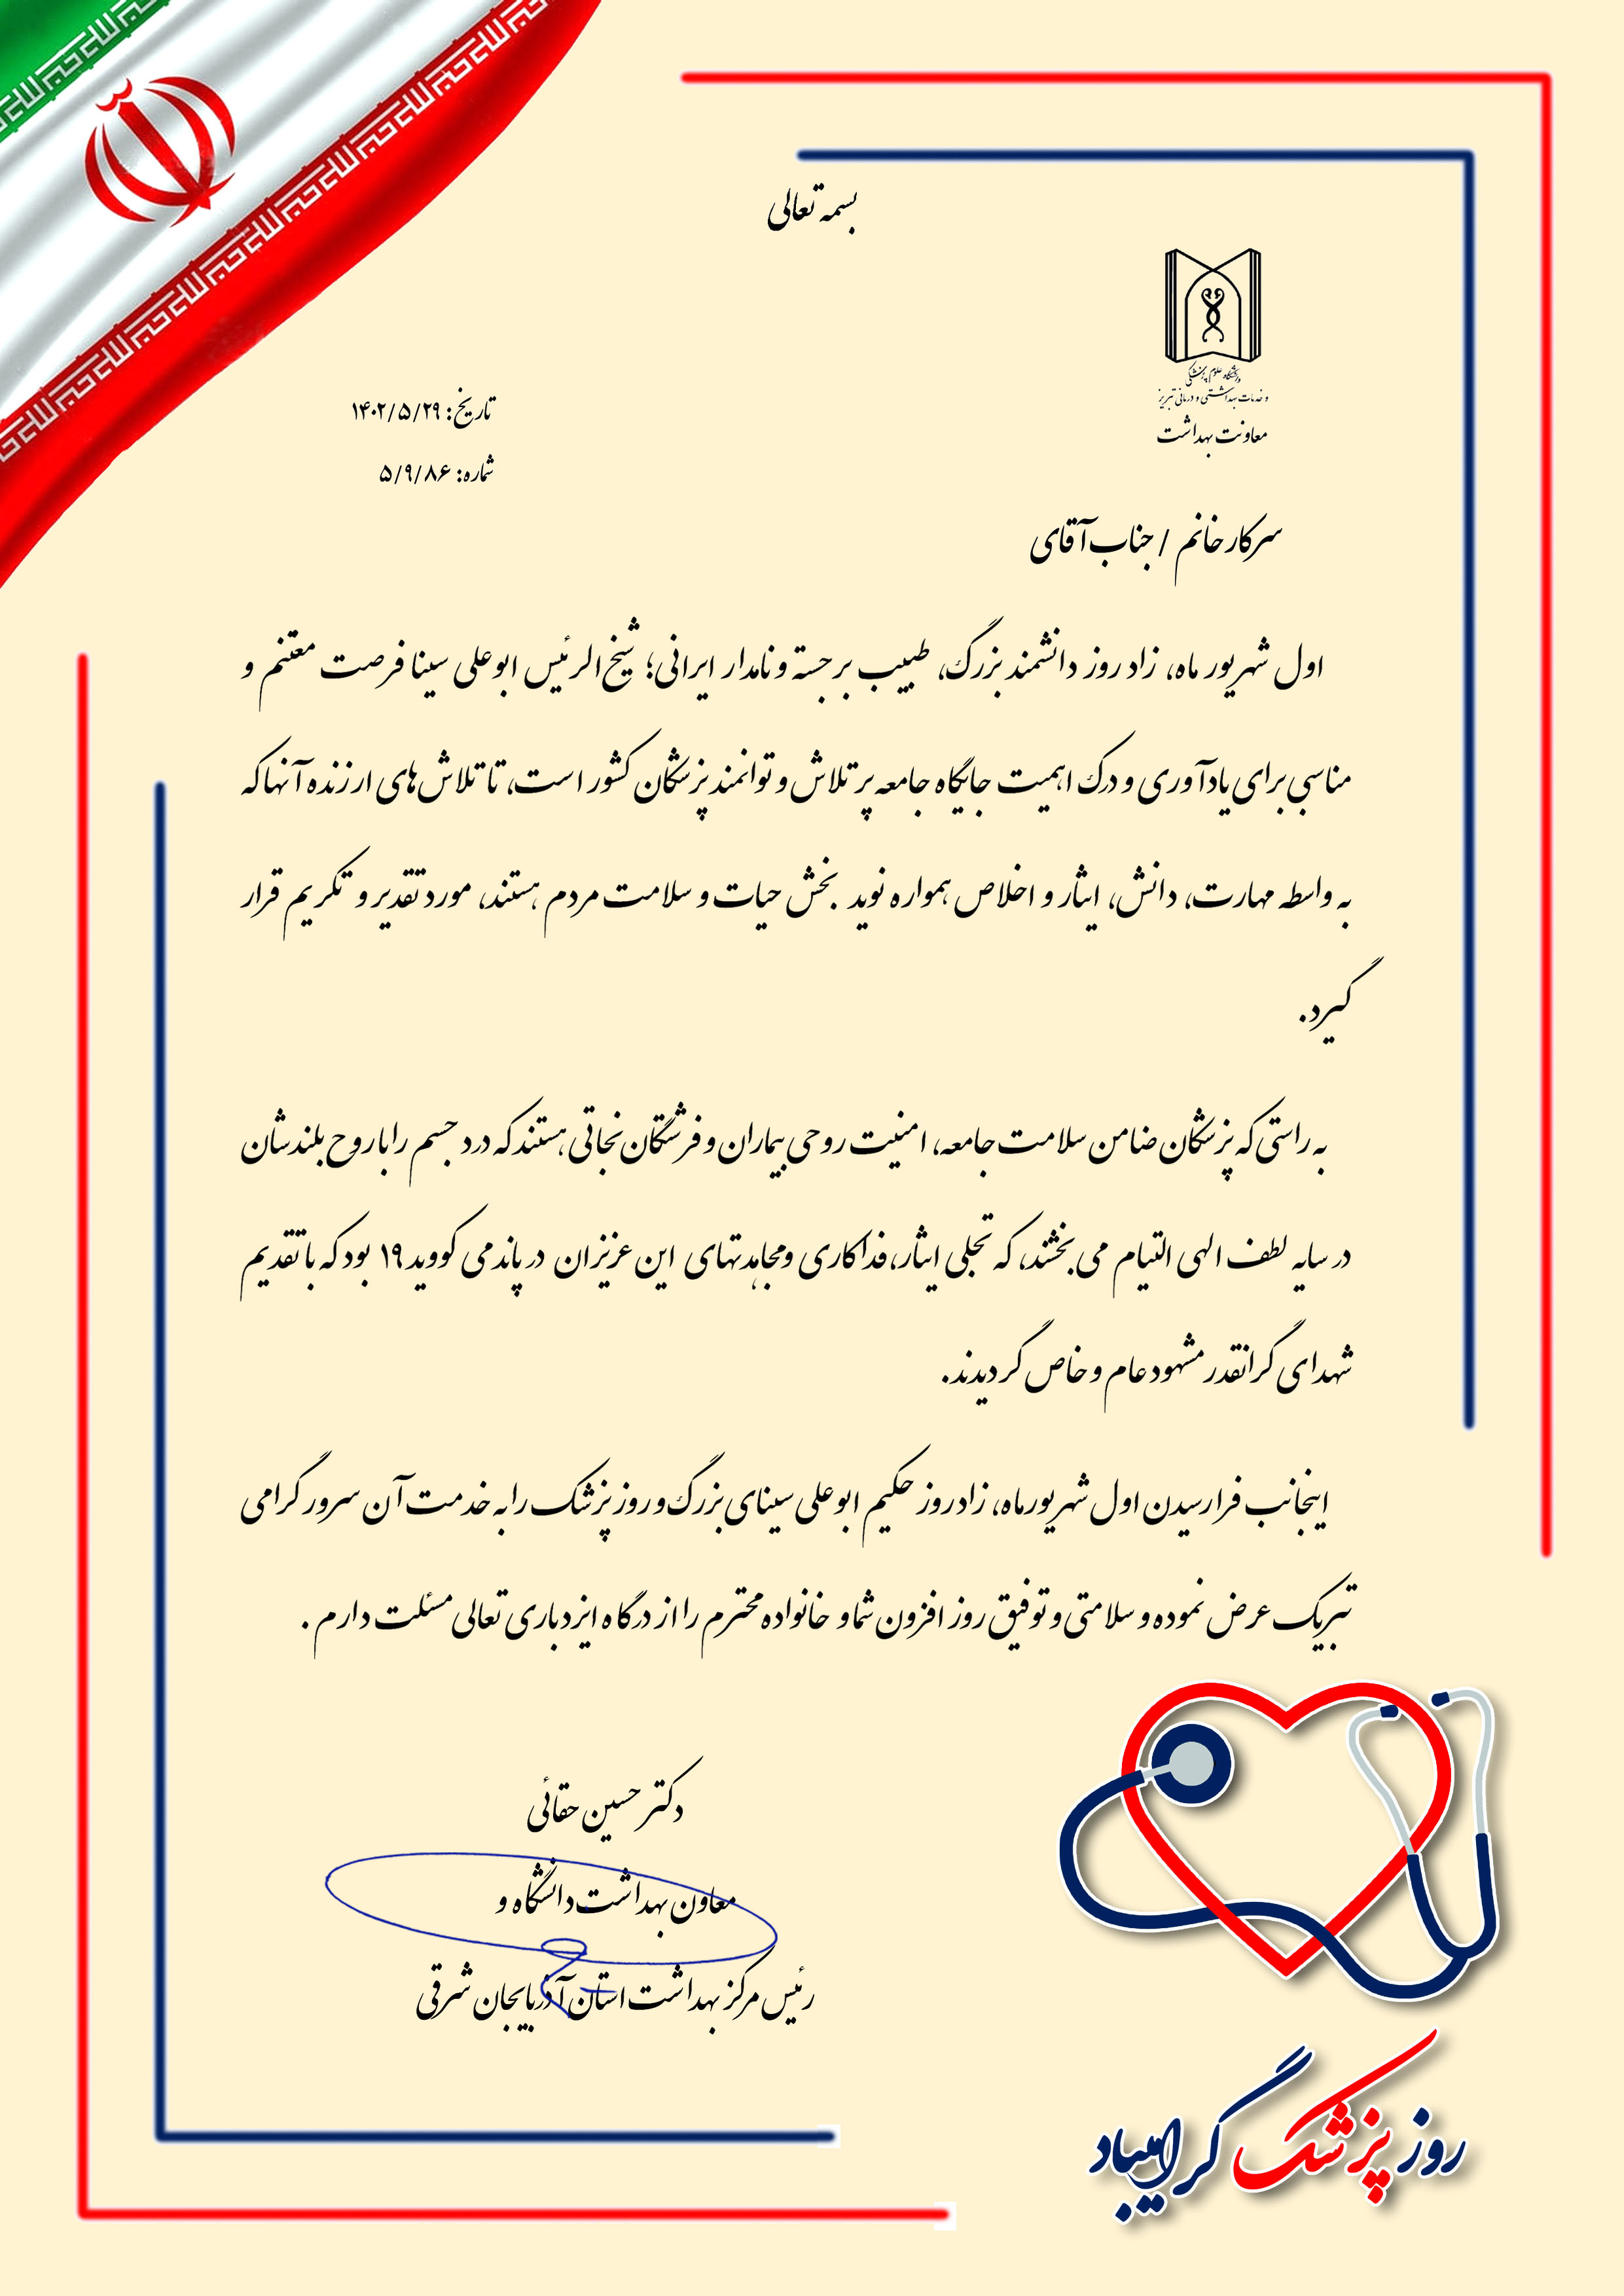 بسمه تعالی
دانشگاه علوم پزشکی
و خدمات بهداشتی و درمانی تبریز
معاونت بهداشت
تاریخ: ۱۴۰۲/۵/۲۹
شماره: ۵/۹/۸۶
سرکار خانم / جناب آقای
اول شهریور ماه، زاد روز دانشمند بزرگ، طبیب برجسته و نامدار ایرانی؛ شیخ الرئیس ابوعلی سینا فرصت مغتنم و
مناسبی برای یادآوری و درک اهمیت جایگاه جامعه پر تلاش و توانمند پزشکان کشور است، تا تلاش های ارزنده آنها که
به واسطه مهارت، دانش، ایثار و اخلاص همواره نوید بخش حیات و سلامت مردم هستند، مورد تقدیر و تکریم قرار
گیرد.
به راستی که پزشکان ضامن سلامت جامعه، امنیت روحی بیماران و فرشتگان نجاتی هستند که درد جسم را با روح بلندشان
در سایه لطف الهی التیام می بخشند، که تجلی ایثار، فداکاری و مجاهدتهای این عزیزان در پاندمی کووید ۱۹ بود که با تقدیم
شهدای گرانقدر مشهود عام و خاص گردیدند.
اینجانب فرارسیدن اول شهریورماه، زادروز حکیم ابوعلی سینای بزرگ و روز پزشک را به خدمت آن سرور گرامی
تبریک عرض نموده و سلامتی و توفیق روز افزون شما و خانواده محترم را از درگاه ایزد باری تعالی مسئلت دارم .
دکتر حسین حقائی
معاون بهداشت دانشگاه و
رئیس مرکز بهداشت استان آذربایجان شرقی
روز پزشک گرامیباد